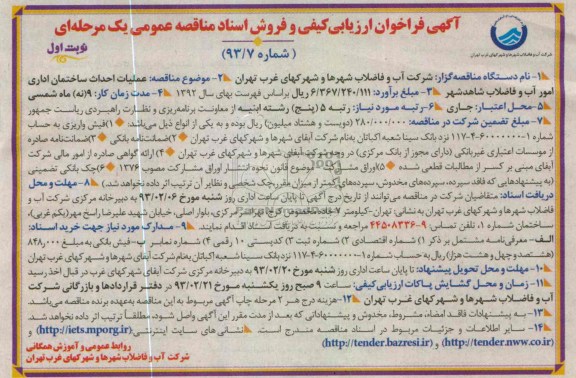 آگهی فراخوان ارزیابی‌کیفی و فروش اسناد مناقصه عمومی یک مرحله‌ای
نوبت اول
( شماره ۹۳/۷ )
شرکت آب و فاضلاب شهرها و شهرکهای غرب تهران
۱- نام دستگاه مناقصه‌گزار: شرکت آب و فاضلاب شهرها و شهرکهای غرب تهران ۲- موضوع مناقصه: عملیات احداث ساختمان اداری
امور آب و فاضلاب شاهدشهر ۳- مبلغ برآورد: ۶/۳۶۷/۲۴۰/۱۱۱ ریال براساس فهرست بهای سال ۱۳۹۲ ۴- مدت زمان کار: (۹نه) ماه شمسی
۵- محل اعتبار: جاری ۶- رتبه مورد نیاز: رتبه ۵ (پنج) رشته ابنیه از معاونت برنامه‌ریزی و نظارت راهبردی ریاست جمهور
۷- مبلغ تضمین شرکت در مناقصه: ۲۸۰/۰۰۰/۰۰۰ (دویست و هشتاد میلیون) ریال بوده و به یکی از انواع ذیل می‌باشد: ۱)فیش واریزی به حساب
شماره ۱-۶۰۰۰۰۰۰-۴-۱۱۷ نزد بانک سینا شعبه اکباتان به‌نام شرکت آبفای شهرها و شهرکهای غرب تهران ۲)ضمانتنامه بانکی ۳)ضمانتنامه صادره
از موسسات اعتباری غیربانکی (دارای مجوز از بانک مرکزی) در وجه شرکت آبفای شهرها و شهرکهای غرب تهران ۴) ارائه گواهی صادره از امور مالی شرکت
آبفای مبنی بر کسر از مطالبات قطعی شده ۵)اوراق مشارکت موضوع قانون نحوه انتشار اوراق مشارکت مصوب ۱۳۷۶ ۶)چک بانکی تضمینی
(به پیشنهادهایی که فاقد سپرده، سپرده‌های مخدوش، سپرده‌های کمتر از میزان مقرر، چک شخصی و نظایر آن ترتیب اثر داده نخواهد شد.) ۸- مهلت و محل
دریافت اسناد: متقاضیان شرکت در مناقصه می‌توانند از تاریخ درج آگهی تا پایان ساعت اداری روز شنبه مورخ ۹۳/۰۲/۰۶ به دبیرخانه مرکزی شرکت آب و
فاضلاب شهرها و شهرکهای غرب تهران به نشانی: تهران-کیلومتر جاده مخصوص کرج، تهرانسر مرکزی، بلوار اصلی، خیابان شهید علیرضا راسخ مهر(یکم غربی)،
ساختمان شماره ۱، تلفن تماس ۹-۴۴۵۰۸۳۳۶ مراجعه و نسبت به دریافت اسناد اقدام نمایند. ۹- مدارک مورد نیاز جهت خرید اسناد:
الف- معرفی‌نامه مشتمل بر ذکر ۱) شماره اقتصادی ۲) شماره ثبت ۳) کدپستی ۱۰ رقمی ۴) شماره نمابر ب- فیش بانکی به مبلغ ۸۴۸/۰۰۰
(هشتصد و چهل و هشت هزار) ریال به حساب شماره ۱-۶۰۰۰۰۰۰-۴-۱۱۷ نزد بانک سینا شعبه اکباتان به‌نام شرکت آبفای شهرها و شهرکهای غرب تهران
۱۰- مهلت و محل تحویل پیشنهاد: تا پایان ساعت اداری روز شنبه مورخ ۹۳/۰۲/۲۰ به دبیرخانه مرکزی شرکت آبفای شهرکهای غرب تهران در قبال اخذ رسید
۱۱- زمان و محل گشایش پاکات ارزیابی کیفی: ساعت ۹ صبح روز یکشنبه مورخ ۹۳/۰۲/۲۱ در دفتر قراردادها و بازرگانی شرکت
آب و فاضلاب شهرها و شهرکهای غرب تهران ۱۲- هزینه درج هر ۲ مرحله چاپ آگهی مربوط به این مناقصه به‌عهده برنده مناقصه می‌باشد.
۱۳- به پیشنهادات فاقد امضاء، مشروط، مخدوش و پیشنهاداتی که بعد از مدت مقرر این آگهی واصل شود، مطلقاً ترتیب اثر داده نخواهد شد.
۱۴- سایر اطلاعات و جزئیات مربوط در اسناد مناقصه مندرج است. نشانی‌های سایت اینترنتی (http://iets.mporg.ir) و
(http://tender.nww.co.ir) و (http://tender.bazresi.ir)
روابط عمومی و آموزش همگانی
شرکت آب و فاضلاب شهرها و شهرکهای غرب تهران